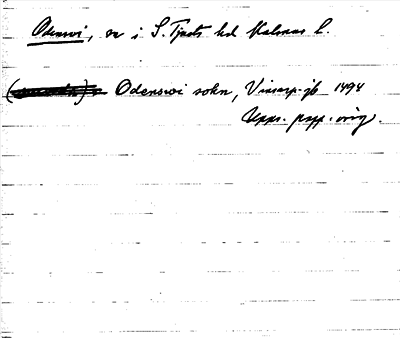 Odensvi, sn i S. Tjusts hd Kalmar l.
Odenswi sokn, Vinarp-jb 1494
Upps. papp. orig.